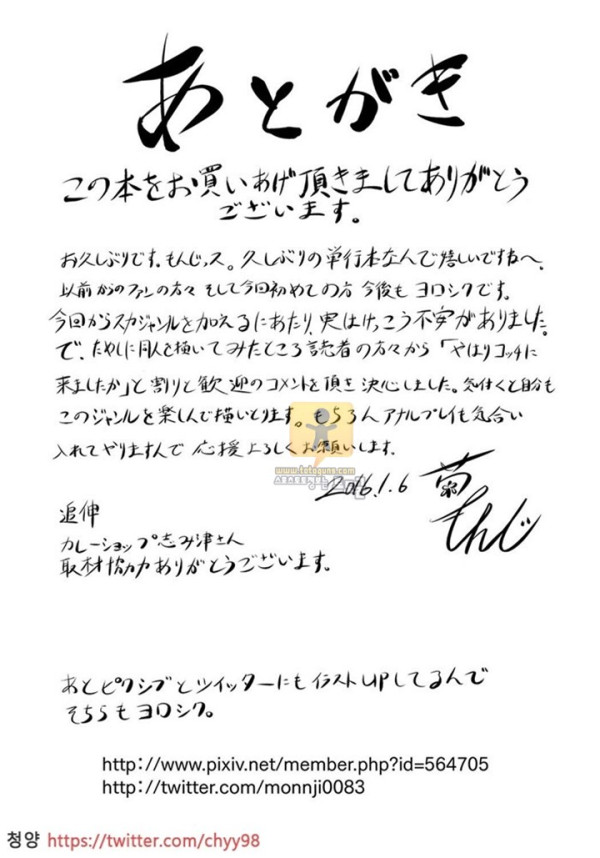 あとがき
この本をお買いあげ頂きましてありがとう
ございます。
お久しぶりです、もんじっス。久しぶりの単行本なんで嬉しいですねへ、
以前からのファンの方々 そして今回初めての方 今後も ヨロシクです。
今回からスカジャンルを加えるにあたり、実はけっこう不安がありました。
で、ためしに同人を描いてみたところ読者の方々から「やはりコッチに
来ましたか」と割りと歓迎のコメントを頂き 決心しました。気付くと自分も
このジャンルを楽しんで描いとります。もちろんアナルプレイも気合い
入れてやりますんで 応援よろしくお願いします。
www.totoguns.com
2016.1.6
菊
もんじ
追伸
カレーショップ志み津さん
取材協力ありがとうございます。
あとピクシブとツイッターにもイラストUPしてるんで
そちらもヨロシク。
http://www.pixiv.net/member.php?id=564705
http://twitter.com/monnji0083
청양 https://twitter.com/chyy98